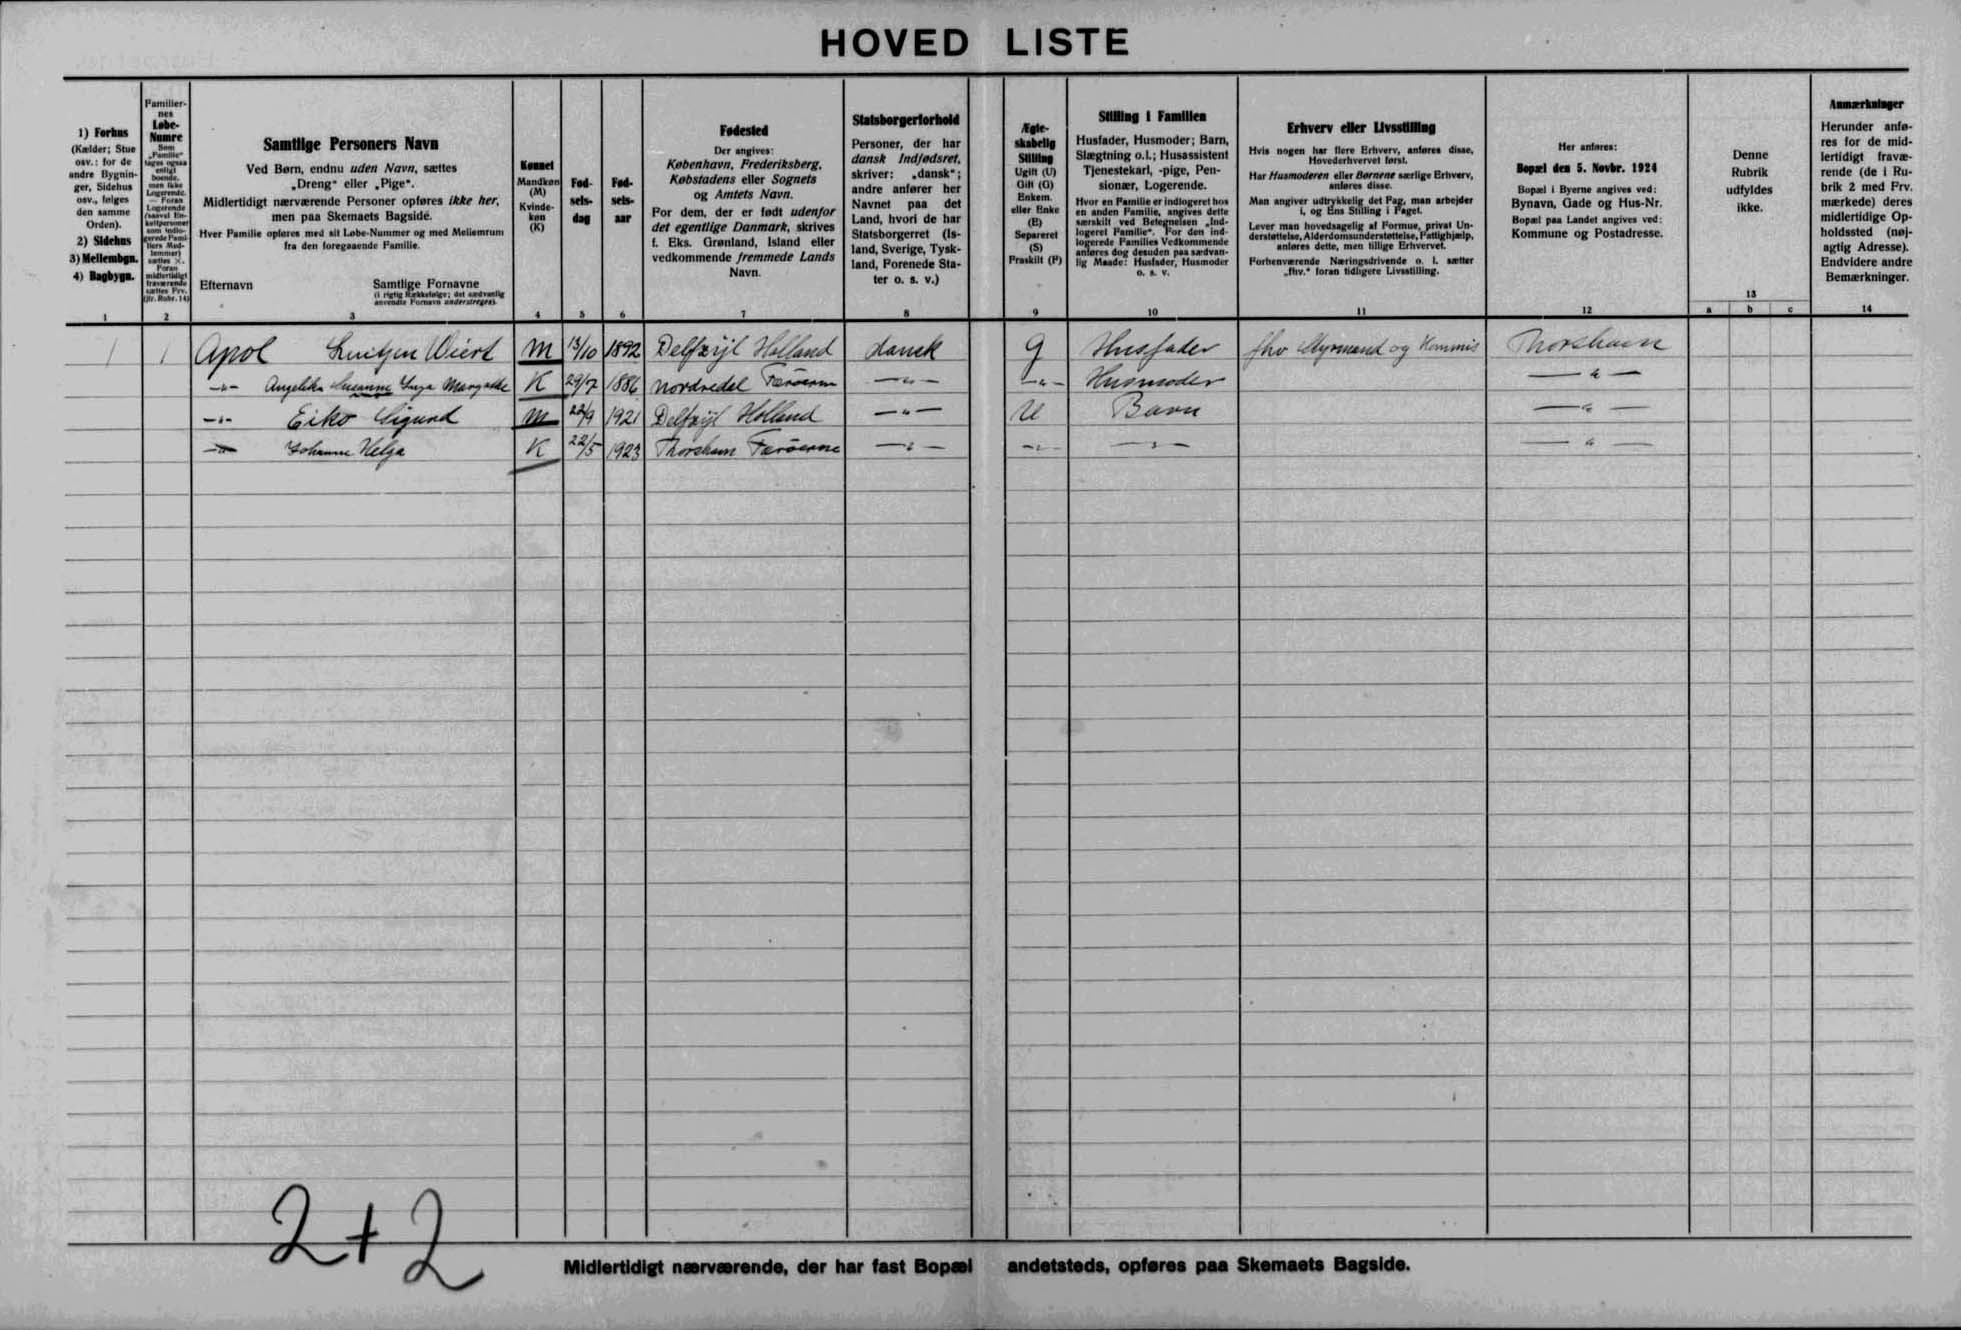 HOVED LISTE
1) Forhus
(Kælder; Stue
osv.: for de
andre Bygnin-
ger, Sidehus
osv., følges
den samme
Orden).
2) Sidehus
3) Mellembgn.
4) Bagbygn.
1
Familier-
nes
Løbe-
Numre
Som
„Familie“
tages ogsaa
enligt
boende,
men ikke
Logerende.
— Foran
Logerende
(saavel En-
keltpersoner
som indlo-
gerede Fami-
liers Med-
lemmer)
sættes ×.
Foran
midlertidigt
fraværende
sættes Frv.
(jfr. Rubr. 14)
2
Samtlige Personers Navn
Ved Børn, endnu uden Navn, sættes
„Dreng“ eller „Pige“.
Midlertidigt nærværende Personer opføres ikke her,
men paa Skemaets Bagside.
Hver Familie opføres med sit Løbe-Nummer og med Mellemrum
fra den foregaaende Familie.
Efternavn Samtlige Fornavne
(i rigtig Rækkefølge; det sædvanlig
anvendte Fornavn understreges).
3
Kønnet
Mandkøn
(M)
Kvinde-
køn
(K)
4
Fød-
sels-
dag
5
Fød-
sels-
aar
6
Fødested
Der angives:
København, Frederiksberg,
Købstadens eller Sognets
og Amtets Navn.
For dem, der er født udenfor
det egentlige Danmark, skrives
f. Eks. Grønland, Island eller
vedkommende fremmede Lands
Navn.
7
Statsborgerforhold
Personer, der har
dansk Indfødsret,
skriver: „dansk“;
andre anfører her
Navnet paa det
Land, hvori de har
Statsborgerret (Is-
land, Sverige, Tysk-
land, Forenede Sta-
ter o. s. v.)
8
Ægte-
skabelig
Stilling
Ugift (U)
Gift (G)
Enkem.
eller Enke
(E)
Separeret
(S)
Fraskilt (F)
9
Stilling i Familien
Husfader, Husmoder; Barn,
Slægtning o.l.; Husassistent
Tjenestekarl, -pige, Pen-
sionær, Logerende.
Hvor en Familie er indlogeret hos
en anden Familie, angives dette
særskilt ved Betegnelsen „Ind-
logeret Familie“. For den ind-
logerede Families Vedkommende
anføres dog desuden paa sædvan-
lig Maade: Husfader, Husmoder
o. s. v.
10
Erhverv eller Livsstilling
Hvis nogen har flere Erhverv, anføres disse,
Hovederhvervet først.
Har Husmoderen eller Børnene særlige Erhverv,
anføres disse.
Man angiver udtrykkelig det Fag, man arbejder
i, og Ens Stilling i Faget.
Lever man hovedsagelig af Formue, privat Un-
derstøttelse, Alderdomsunderstøttelse, Fattighjælp,
anføres dette, men tillige Erhvervet.
Forhenværende Næringsdrivende o. l. sætter
„fhv.“ foran tidligere Livsstilling.
11
Her anføres:
Bopæl den 5. Novbr. 1924
Bopæl i Byerne angives ved:
Bynavn, Gade og Hus-Nr.
Bopæl paa Landet angives ved:
Kommune og Postadresse.
12
Denne
Rubrik
udfyldes
ikke.
13
a b c
Anmærkninger
Herunder anfø-
res for de mid-
lertidigt fravæ-
rende (de i Ru-
brik 2 med Frv.
mærkede) deres
midlertidige Op-
holdssted (nøj-
agtig Adresse).
Endvidere andre
Bemærkninger.
14
1 1 Apol Luitjen Wiert M 13/10 1892 Delfzijl Holland dansk G Husfader fhv Styrmand og Kommis Thorshavn
-"- Angelika Susanne Inga K 29/7 1886 Nordredal Færøerne -"- -"- Husmoder -"-
-"- Eiko Sigurd M 22/9 1921 Delfzijl Holland -"- U Barn -"-
-"- Johanne Helga K 22/5 1923 Thorshavn Færøerne -"- -"- -"- -"-
2+2
Midlertidigt nærværende, der har fast Bopæl andetsteds, opføres paa Skemaets Bagside.